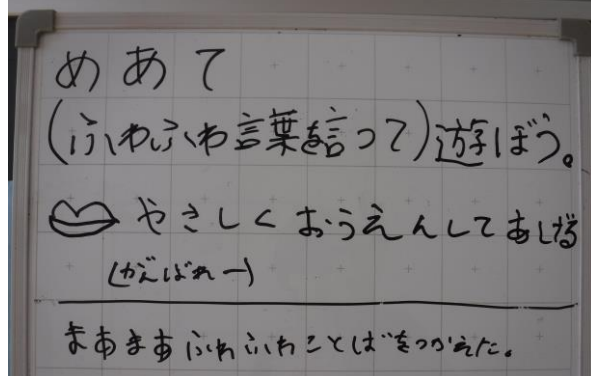 めあて
(ふわふわ言葉を言って)遊ぼう。
やさしくおうえんしてあげる
(がんばれー)
まあまあふわふわことばをつかえた。